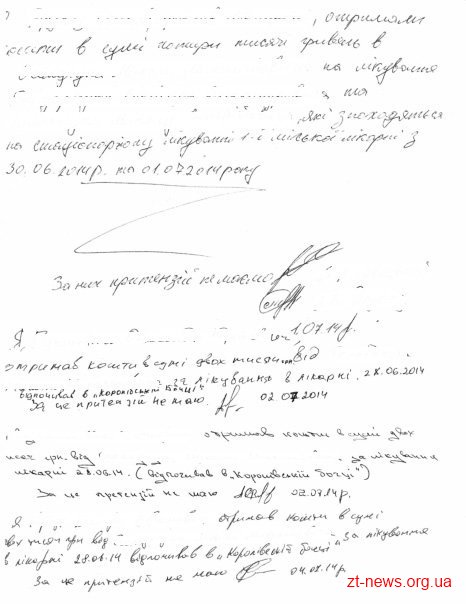 , отримали
кошти в сумі чотири тисячі гривень в
на лікування
та
, які знаходяться
на стаціонарному лікуванні 1-ї міської лікарні з
30.06.2014р. по 01.07.2014 року
За них притензій не маємо
1.07.14р.
Я,
отримав кошти в сумі двох тисяч від
за лікування в лікарні, 28.06.2014
відпочивав в "Королівській бочці"
За це притензій не маю. 02.07.2014
отримав кошти в сумі двох
тисяч грн. від за лікування
лікарні 28.06.14. (відпочивав в "Королівській бочці")
За це претензій не маю 02.07.14р.
Я отримав кошти в сумі
двох тисяч грн від за лікування
в лікарні 28.06.14 відпочивав в "Королівській бочці"
За це притензій не маю 04.07.14р.
zt-news.org.ua